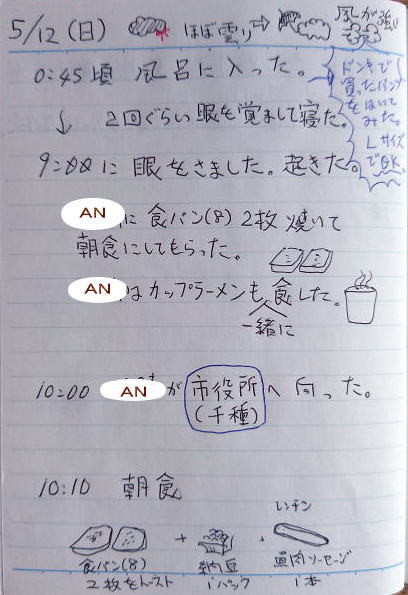 5/12(日) ほぼ曇り→ 風が強い
0:45頃 風呂に入った。
ドンキで
買ったパンツ
をはいて
みた。
Lサイズ
でOK
↓ 2回ぐらい眼を覚まして寝た。
9:00に 眼をさました。起きた。
ANに 食パン(8) 2枚 焼いて
朝食にしてもらった。
ANはカップラーメンも食した。
一緒に
10:00 ANが 市役所へ向った。
(千種)
10:10 朝食
レンチン
+ +
食パン(8) 納豆 魚肉ソーセージ
2枚をトースト 1パック 1本